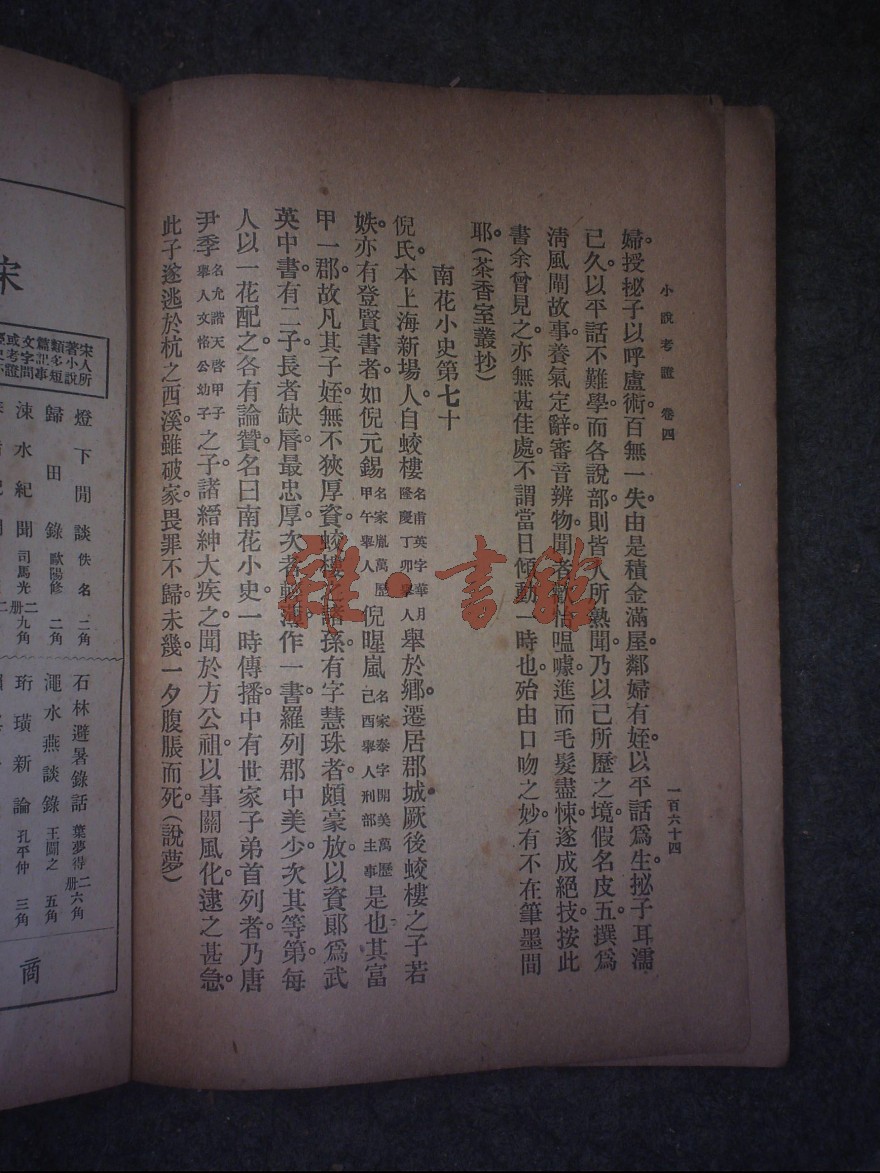 小說考證 卷四
一百六十四
婦。授祕子以呼盧術。百無一失。由是積金滿屋。鄰婦有姪。以平話爲生。祕子耳濡
已久。以平話不難學。而各說部則皆人所熟聞。乃以己所歷之境。假名皮五。撰爲
淸風閘故事。養氣定辭。審音辨物。聞者歡恰嗢噱。進而毛髮盡悚。遂成絕技。按此
書余曾見之。亦無甚佳處。不謂當日傾動一時也。殆由口吻之妙。有不在筆墨間
耶。(茶香室叢抄)
南花小史第七十
倪氏。本上海新場人。自蛟樓名甫英字華月隆慶丁卯舉人舉於鄉。遷居郡城。厥後蛟樓之子若
姪。亦有登賢書者。如倪元錫名家胤萬歷甲午舉人倪暒嵐名家泰字開美萬歷己酉舉人刑部主事是也。其富
甲一郡。故凡其子姪。無不狹厚資。蛟樓諸孫。有字慧珠者。頗豪放。以資郞爲武
英中書。有二子。長者缺脣。最忠厚。次者輕薄。作一書。羅列郡中美少。次其等第。每
人以一花配之。各有論贊。名曰南花小史。一時傳播。中有世家子弟首列者。乃唐
尹季名允諧天啓甲子舉人文恪公幼子之子。諸縉紳大疾之。聞於方公祖。以事關風化。逮之甚急。
此子遂逃於杭之西溪。雖破家。畏罪不歸。未幾。一夕腹脹而死。(說夢)
雜·書館
宋
宋人所著小說類多短篇記事文字間或考證
燈下閒談 佚名 二角
歸田錄 歐陽修 二角
涑水紀聞 司馬光 二册 九角
石林避暑錄話 葉夢得 二册 六角
澠水燕談錄 王闢之 五角
珩璜新論 孔平仲 三角
商